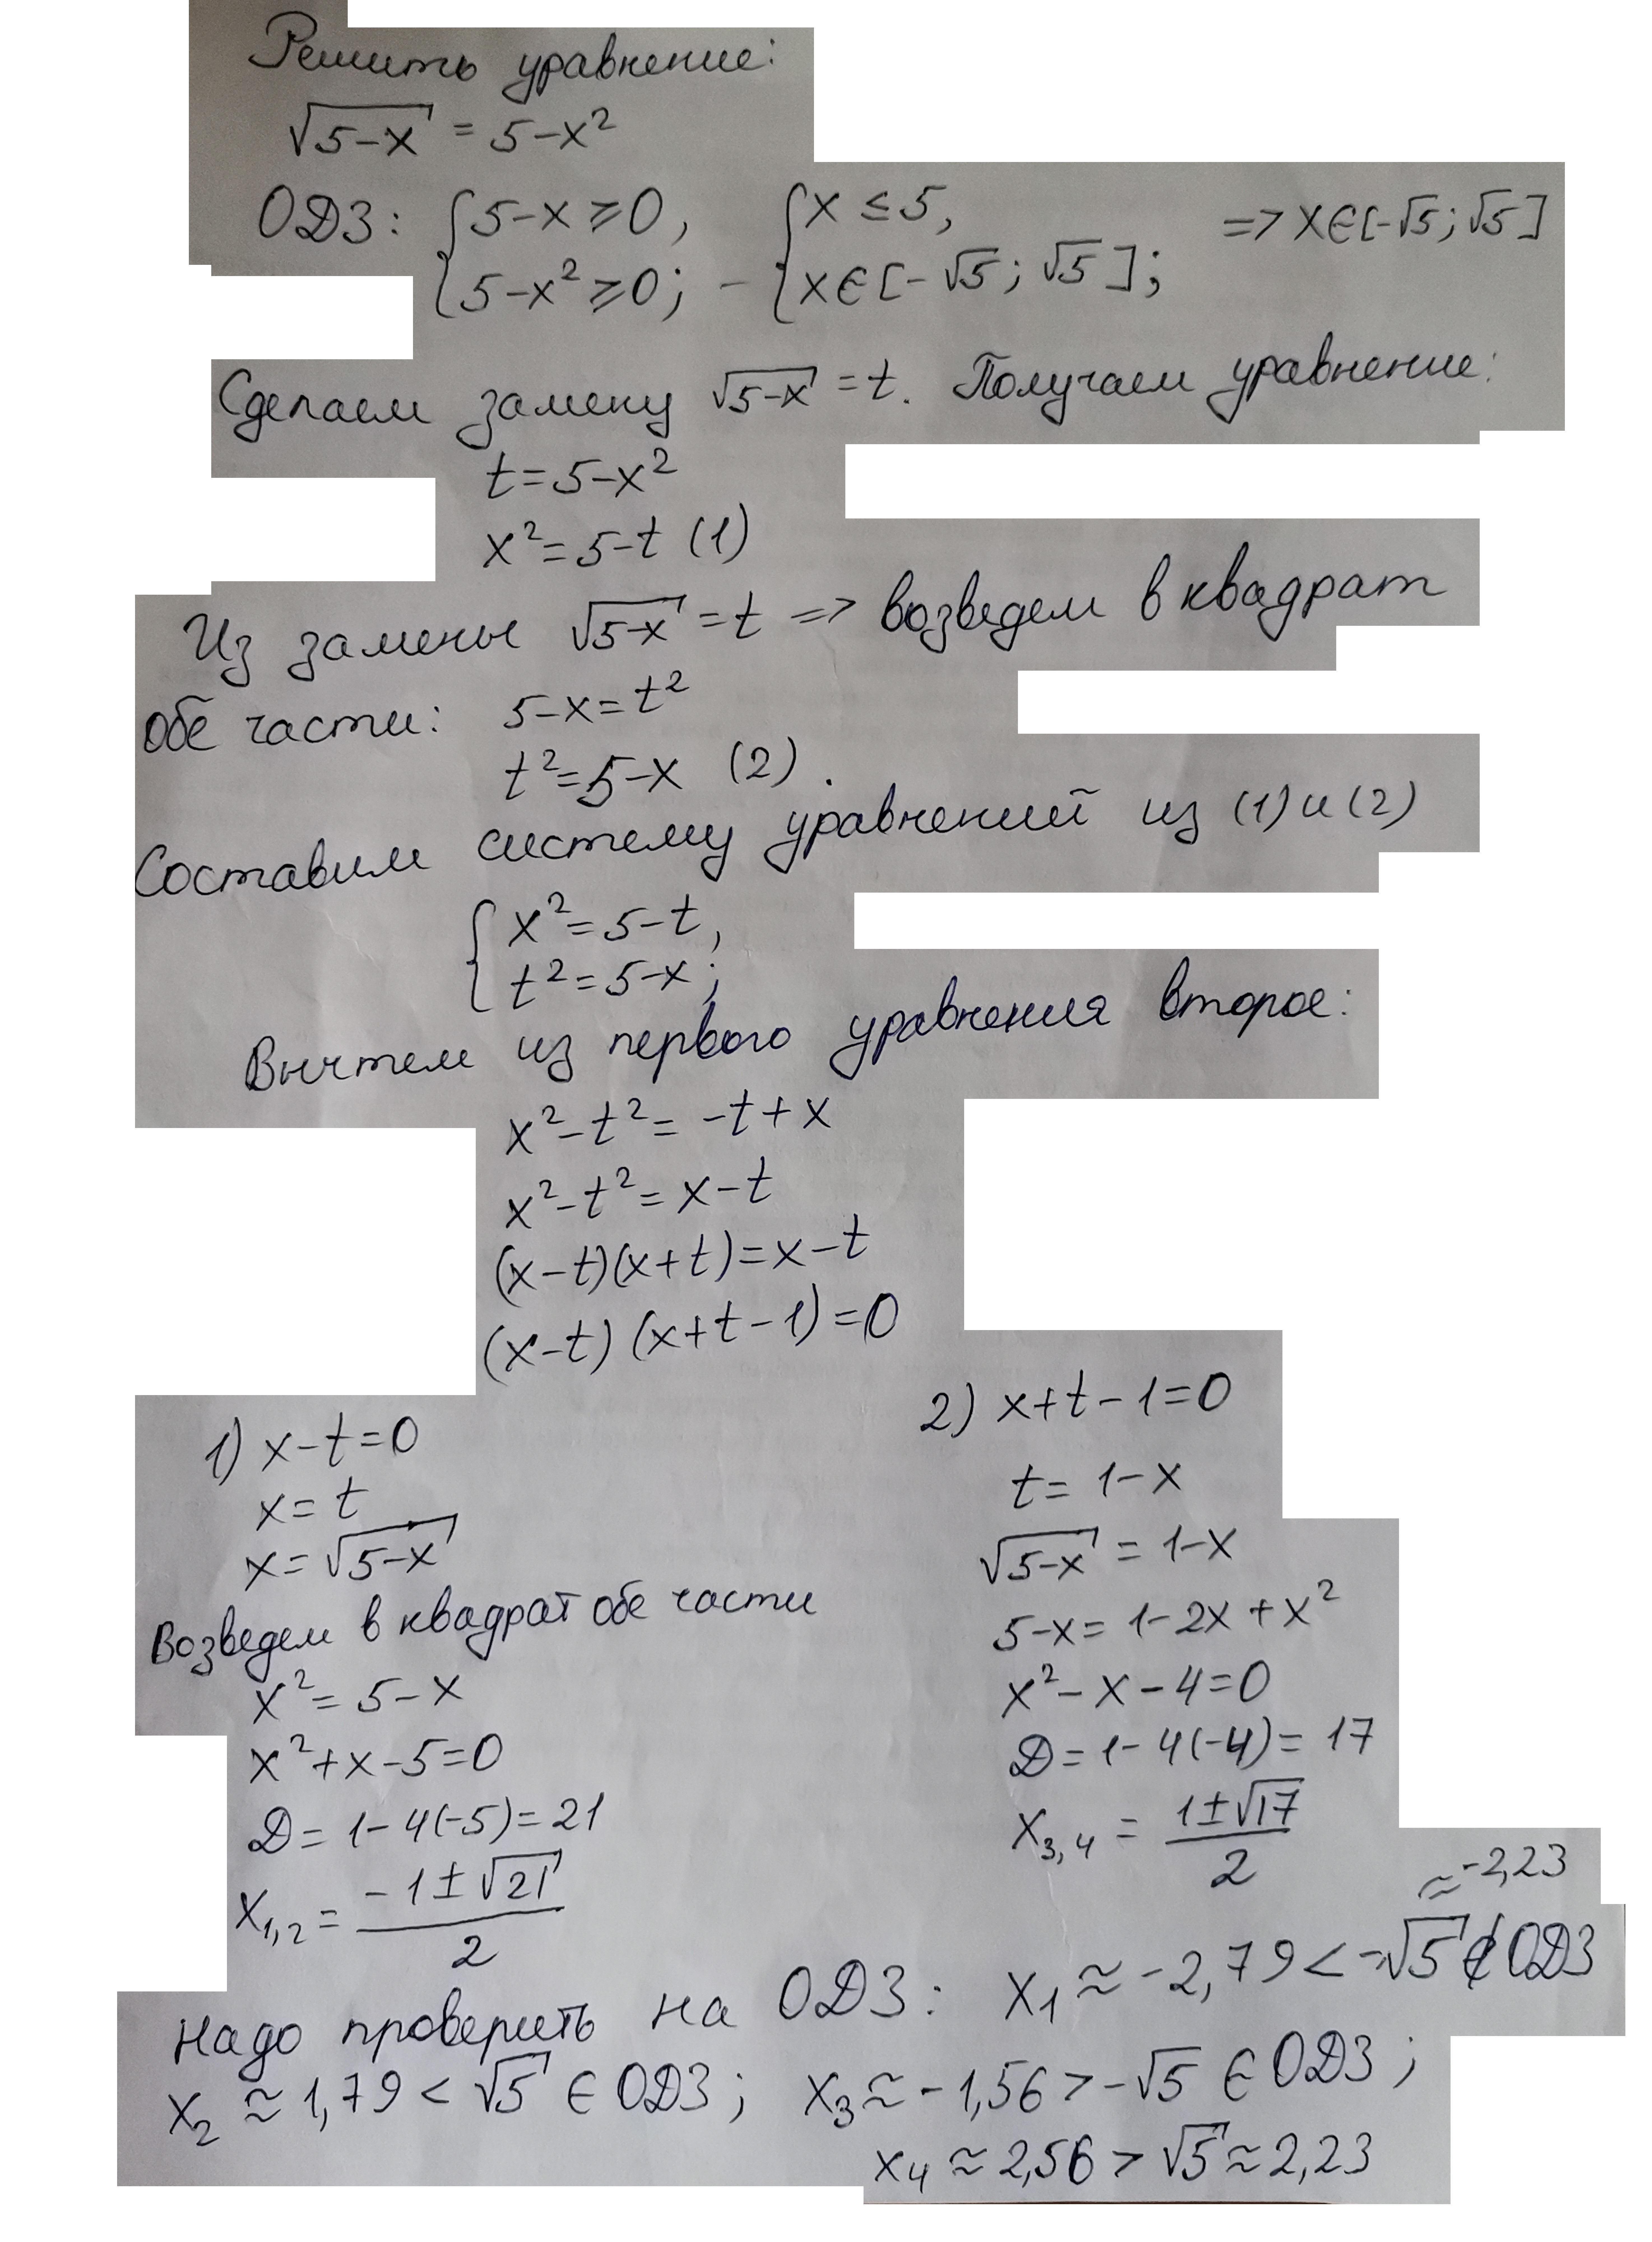 Решить уравнение:
√(5-x) = 5-x²
ОДЗ: { 5-x ≥ 0, 5-x² ≥ 0; - { x ≤ 5, x ∈ [-√5; √5]; => x ∈ [-√5; √5]
Сделаем замену √(5-x) = t. Получаем уравнение:
t = 5-x²
x² = 5-t (1)
Из замены √(5-x) = t => возведем в квадрат
обе части: 5-x = t²
t² = 5-x (2).
Составим систему уравнений из (1) и (2)
{ x² = 5-t,
t² = 5-x;
Вычтем из первого уравнения второе:
x²-t² = -t+x
x²-t² = x-t
(x-t)(x+t) = x-t
(x-t)(x+t-1) = 0
1) x-t = 0
x = t
x = √(5-x)
Возведем в квадрат обе части
x² = 5-x
x²+x-5 = 0
D = 1-4(-5) = 21
x₁,₂ = (-1±√21)/2
2) x+t-1 = 0
t = 1-x
√(5-x) = 1-x
5-x = 1-2x+x²
x²-x-4 = 0
D = 1-4(-4) = 17
x₃,₄ = (1±√17)/2
≈ -2,23
Надо проверить на ОДЗ: x₁ ≈ -2,79 < -√5 ∉ ОДЗ
x₂ ≈ 1,79 < √5 ∈ ОДЗ; x₃ ≈ -1,56 > -√5 ∈ ОДЗ;
x₄ ≈ 2,56 > √5 ≈ 2,23